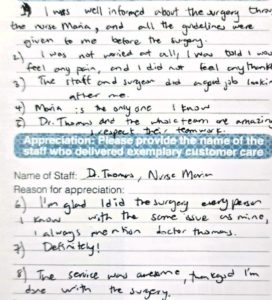 1) I was well informed about the surgery throu
the nurse Maria, and all the guidelines were
given to me before the surgery.
2) I was not worried at all, I was told I wou
feel any pain, and I did not feel anything
3) The staff and surgeon did a good job lookin
after me.
4) Maria is the only one I know
5) Dr. Thomas and the whole team are amazing
I respect their teamwork.
Appreciation: Please provide the name of the
staff who delivered exemplary customer care
Name of Staff: D. Thomas, Nurse Maria
Reason for appreciation:
6) I'm glad I did the surgery every person
I know with the same issue as mine,
I always mention doctor thomas.
7) Definitely!
8) The service was awesome, thank god I'm
done with the surgery.